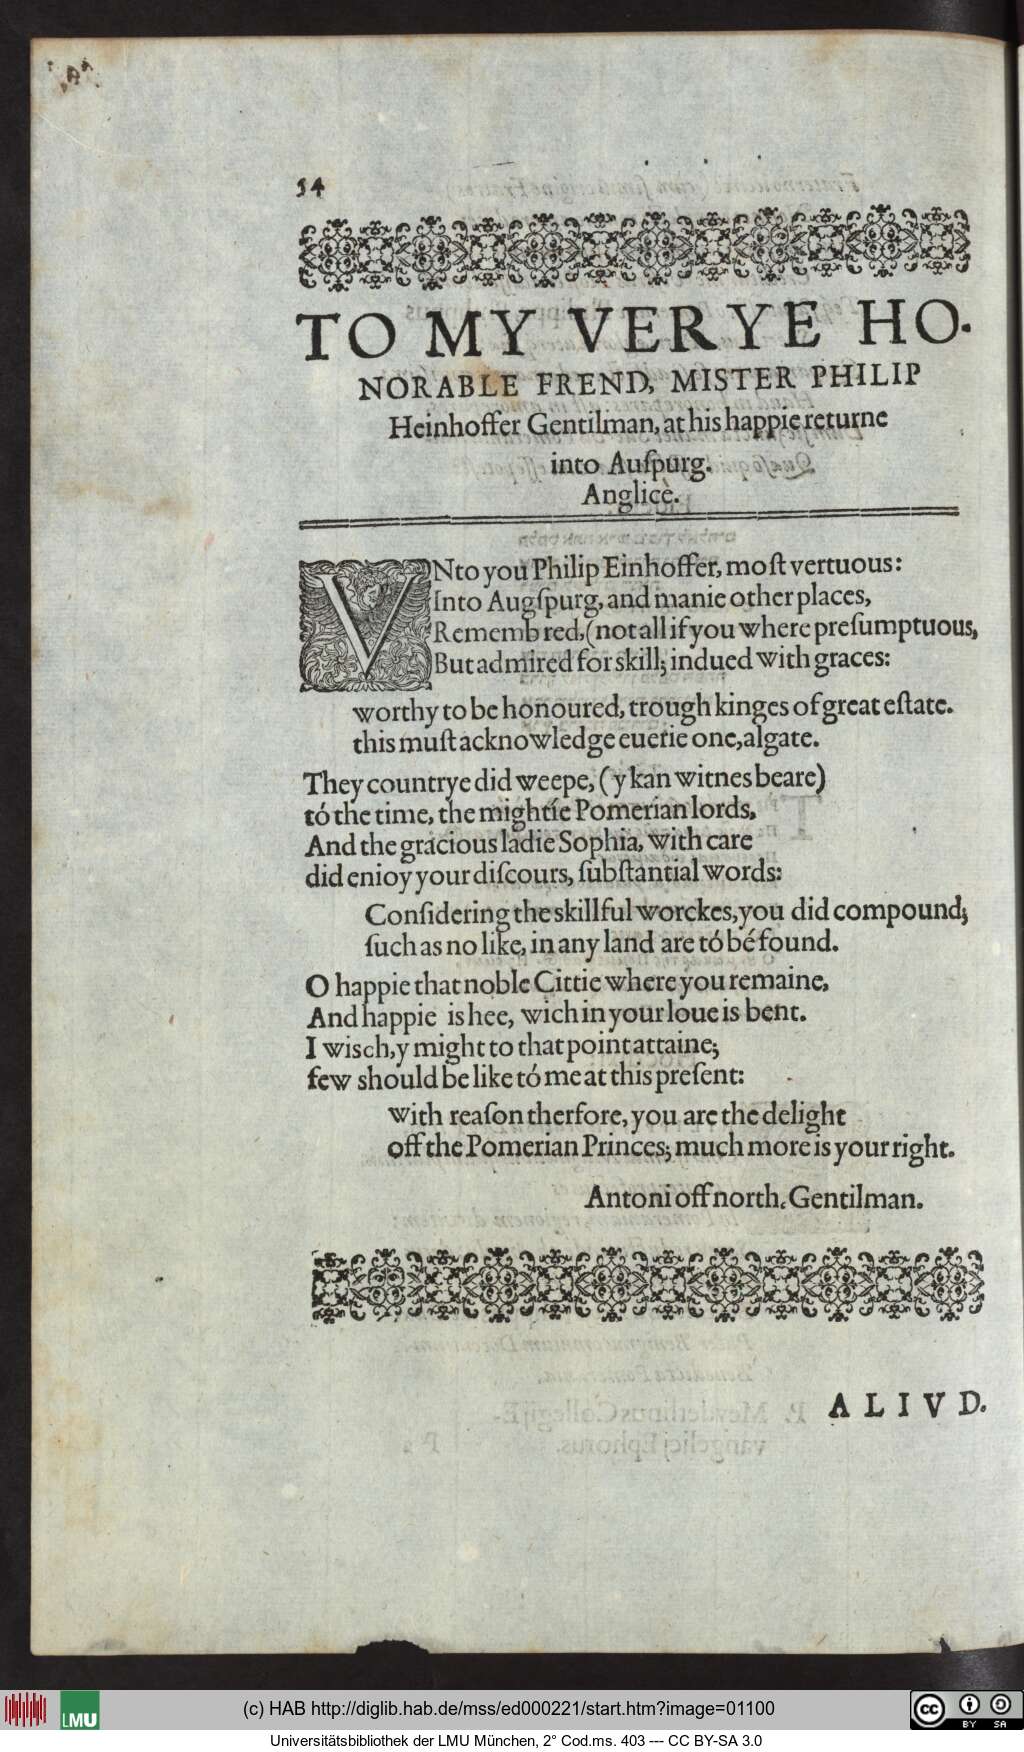 54
TO MY VERYE HO-
NORABLE FREND, MISTER PHILIP
Heinhoffer Gentilman, at his happie returne
into Auſpurg.
Anglicè.
VNto you Philip Einhoffer, moſt vertuous:
Into Augſpurg, and manie other places,
Remembred, (not all if you where preſumptuous,
But admired for skill; indued with graces:
worthy to be honoured, trough kinges of great eſtate.
this muſt acknowledge euerie one, algate.
They countrye did weepe, (y kan witnes beare)
tó the time, the mightíe Pomerian lords,
And the gracious ladie Sophia, with care
did enioy your diſcours, ſubſtantial words:
Conſidering the skillful worckes, you did compound;
ſuch as no like, in any land are tó bé found.
O happie that noble Cittie where you remaine,
And happie is hee, wich in your loue is bent.
I wisch, y might to that point attaine;
few should be like tó me at this preſent:
with reaſon therfore, you are the delight
off the Pomerian Princes; much more is your right.
Antoni off north. Gentilman.
ALIVD.
LMU
(c) HAB http://diglib.hab.de/mss/ed000221/start.htm?image=01100
cc BY SA
Universitätsbibliothek der LMU München, 2° Cod.ms. 403 --- CC BY-SA 3.0